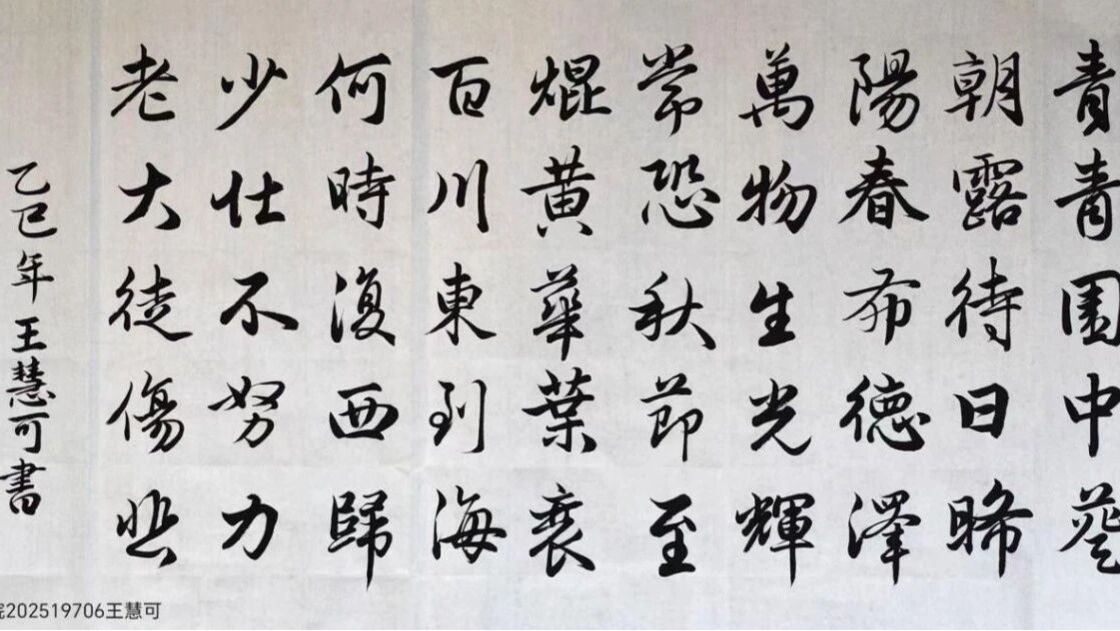 青青園中葵
朝露待日晞
陽春布德澤
萬物生光輝
常恐秋節至
焜黄華葉衰
百川東到海
何時復西歸
少仕不努力
老大徒傷悲
乙巳年王慧可書
院202519706王慧可